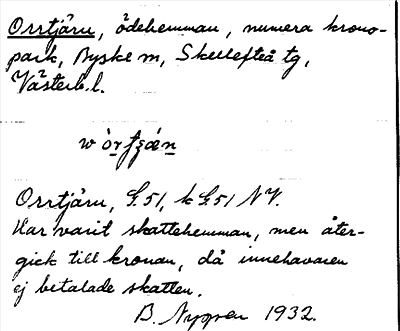 Orrtjärn, ödehemman, numera krono-
park, Byske sn, Skellefteå tg,
Västerb. l.
Orrtjärn, G.51, k G.51 NV.
Har varit skattehemman, men åter-
gick till kronan, då innehavaren
ej betalade skatten.
B. Nygren 1932.